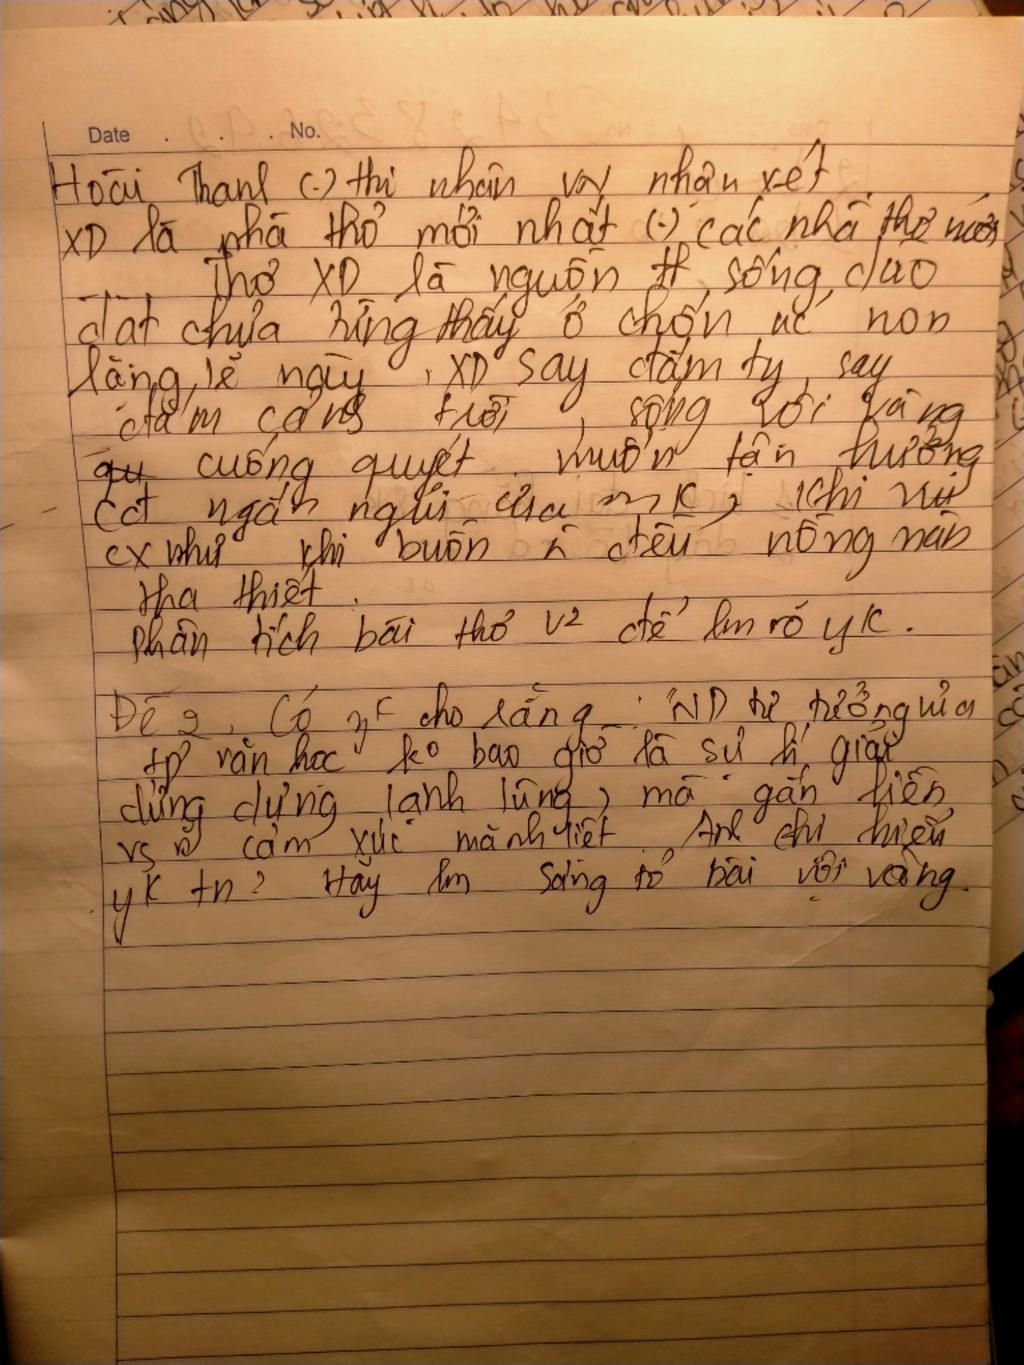 Date . . . No.
Hoài Thanh (-) thi nhân VN nhận xét
XD là nhà thơ mới nhất (-) các nhà thơ mới
Thơ XD là nguồn sống dào
dạt chưa từng thấy ở chốn nc non
lặng lẽ này, XD say đắm ty, say
đắm cảnh trời, sống vội vàng
cuống quýt muốn tận hưởng
cđ ngắn ngủi của mk, khi vui
cx như khi buồn đều nồng nàn
tha thiết.
Phân tích bài thơ V2 để lm rõ yk.
Đề 2. Có yk cho rằng: "ND tư tưởng của
tp văn học ko bao giờ là sự lí giải
dửng dưng lạnh lùng, mà gắn liền
vs cảm xúc mãnh liệt. Anh chị hiểu
yk tn? Hãy lm sáng tỏ bài vội vàng.